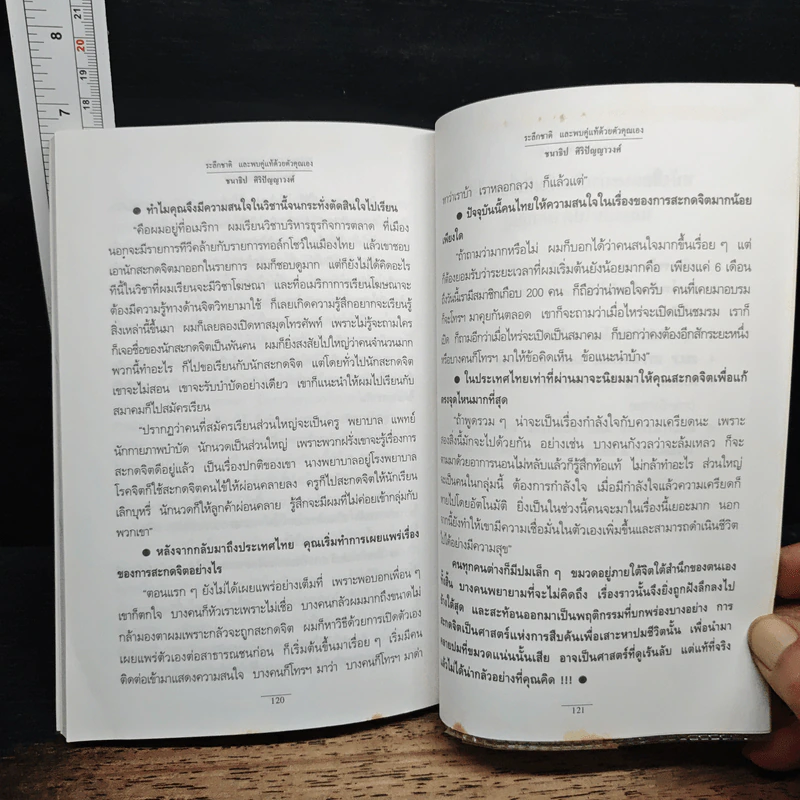 8
7
21
20
19
18
ระลึกชาติ และพบคู่แท้ด้วยตัวคุณเอง
ชนาธิป ศิริปัญญาวงศ์
● ทำไมคุณจึงมีความสนใจในวิชานี้จนกระทั่งตัดสินใจไปเรียน
“คือผมอยู่ที่อเมริกา ผมเรียนวิชาบริหารธุรกิจการตลาด ที่เมือง
นอกจะมีรายการทีวีคล้ายกับรายการทอล์กโชว์ในเมืองไทย แล้วเขาชอบ
เอานักสะกดจิตมาออกในรายการ ผมก็ชอบดูมาก แต่ก็ยังไม่ได้คิดอะไร
ทีนี้ในวิชาที่ผมเรียนจะมีวิชาโฆษณา และที่อเมริกาการเรียนโฆษณาจะ
ต้องมีความรู้ทางด้านจิตวิทยามาใช้ ก็เลยเกิดความรู้สึกอยากจะเรียนรู้
สิ่งเหล่านี้ขึ้นมา ผมก็เลยลองเปิดหาสมุดโทรศัพท์ เพราะไม่รู้จะถามใคร
ก็เจอชื่อของนักสะกดจิตเป็นพันคน ผมก็ยิ่งสงสัยไปใหญ่ว่าคนจำนวนมาก
พวกนี้ทำอะไร ก็ไปขอเรียนกับนักสะกดจิต แต่โดยทั่วไปนักสะกดจิต
เขาจะไม่สอน เขาจะรับบำบัดอย่างเดียว เขาก็แนะนำให้ผมไปเรียนกับ
สมาคมก็ไปสมัครเรียน
“ปรากฏว่าคนที่สมัครเรียนส่วนใหญ่จะเป็นครู พยาบาล แพทย์
นักกายภาพบำบัด นักนวดเป็นส่วนใหญ่ เพราะพวกฝรั่งเขาจะรู้เรื่องการ
สะกดจิตดีอยู่แล้ว เป็นเรื่องปกติของเขา นางพยาบาลอยู่โรงพยาบาล
โรคจิตก็ใช้สะกดจิตคนไข้ให้ผ่อนคลายลง ครูก็ไปสะกดจิตให้นักเรียน
เลิกบุหรี่ นักนวดก็ให้ลูกค้าผ่อนคลาย รู้สึกจะมีผมที่ไม่ค่อยเข้ากลุ่มกับ
พวกเขา”
● หลังจากกลับมาถึงประเทศไทย คุณเริ่มทำการเผยแพร่เรื่อง
ของการสะกดจิตอย่างไร
“ตอนแรก ๆ ยังไม่ได้เผยแพร่อย่างเต็มที่ เพราะพอบอกเพื่อน ๆ
เขาก็ตกใจ บางคนก็หัวเราะเพราะไม่เชื่อ บางคนกลัวผมมากถึงขนาดไม่
กล้ามองตาผมเพราะกลัวจะถูกสะกดจิต ผมก็หาวิธีด้วยการเปิดตัวเอง
เผยแพร่ตัวเองต่อสาธารณชนก่อน ก็เริ่มต้นขึ้นมาเรื่อย ๆ เริ่มมีคน
ติดต่อเข้ามาแสดงความสนใจ บางคนก็โทรฯ มาว่า บางคนก็โทรฯ มาด่า
120
ระลึกชาติ และพบคู่แท้ด้วยตัวคุณเอง
ชนาธิป ศิริปัญญาวงศ์
หาว่าเราบ้า เราหลอกลวง ก็แล้วแต่”
● ปัจจุบันนี้คนไทยให้ความสนใจในเรื่องของการสะกดจิตมากน้อย
เพียงใด
“ถ้าถามว่ามากหรือไม่ ผมก็บอกได้ว่าคนสนใจมากขึ้นเรื่อย ๆ แต่
ก็ต้องยอมรับว่าระยะเวลาที่ผมเริ่มต้นยังน้อยมากคือ เพียงแค่ 6 เดือน
ถึงวันนี้เรามีสมาชิกเกือบ 200 คน ก็ถือว่าน่าพอใจครับ คนที่เคยมาอบรม
ก็จะโทรฯ มาคุยกันตลอด เขาก็จะถามว่าเมื่อไหร่จะเปิดเป็นชมรม เราก็
เปิด ก็ถามอีกว่าเมื่อไหร่จะเปิดเป็นสมาคม ก็บอกว่าคงต้องอีกสักระยะหนึ่ง
หรือบางคนก็โทรฯ มาให้ข้อคิดเห็น ข้อแนะนำบ้าง”
● ในประเทศไทยเท่าที่ผ่านมาจะนิยมมาให้คุณสะกดจิตเพื่อแก้
ตรงจุดไหนมากที่สุด
“ถ้าพูดรวม ๆ น่าจะเป็นเรื่องกำลังใจกับความเครียดนะ เพราะ
สองสิ่งนี้มักจะไปด้วยกัน อย่างเช่น บางคนกังวลว่าจะล้มเหลว ก็จะ
ตามมาด้วยอาการนอนไม่หลับแล้วก็รู้สึกท้อแท้ ไม่กล้าทำอะไร ส่วนใหญ่
จะเป็นคนในกลุ่มนี้ ต้องการกำลังใจ เมื่อมีกำลังใจแล้วความเครียดก็
หายไปโดยอัตโนมัติ ยิ่งเป็นในช่วงนี้คนจะมาในเรื่องนี้เยอะมาก นอก
จากนี้ยังทำให้เขามีความเชื่อมั่นในตัวเองเพิ่มขึ้นและสามารถดำเนินชีวิต
ไปได้อย่างมีความสุข”
คนทุกคนต่างก็มีปมเล็ก ๆ ขมวดอยู่ภายใต้จิตใต้สำนึกของตนเอง
ทั้งสิ้น บางคนพยายามที่จะไม่คิดถึง เรื่องราวนั้นจึงยิ่งถูกฝังลึกลงไป
ข้างใต้สุด และสะท้อนออกมาเป็นพฤติกรรมที่บกพร่องบางอย่าง การ
สะกดจิตเป็นศาสตร์แห่งการสืบค้นเพื่อเสาะหาปมชีวิตนั้น เพื่อนำมา
คลายปมที่ขมวดแน่นนั้นเสีย อาจเป็นศาสตร์ที่ดูเร้นลับ แต่แท้ที่จริง
แล้วไม่ได้น่ากลัวอย่างที่คุณคิด !!! ●
121